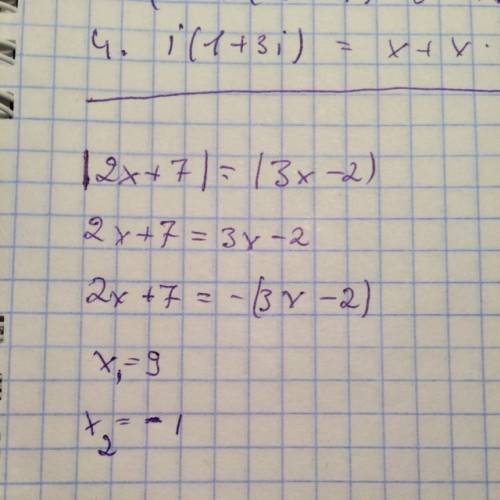 4. i(1+3i) = x+x·
|2x+7|=(3x-2)
2x+7=3x-2
2x+7=-(3x-2)
x₁=9
x₂=-1